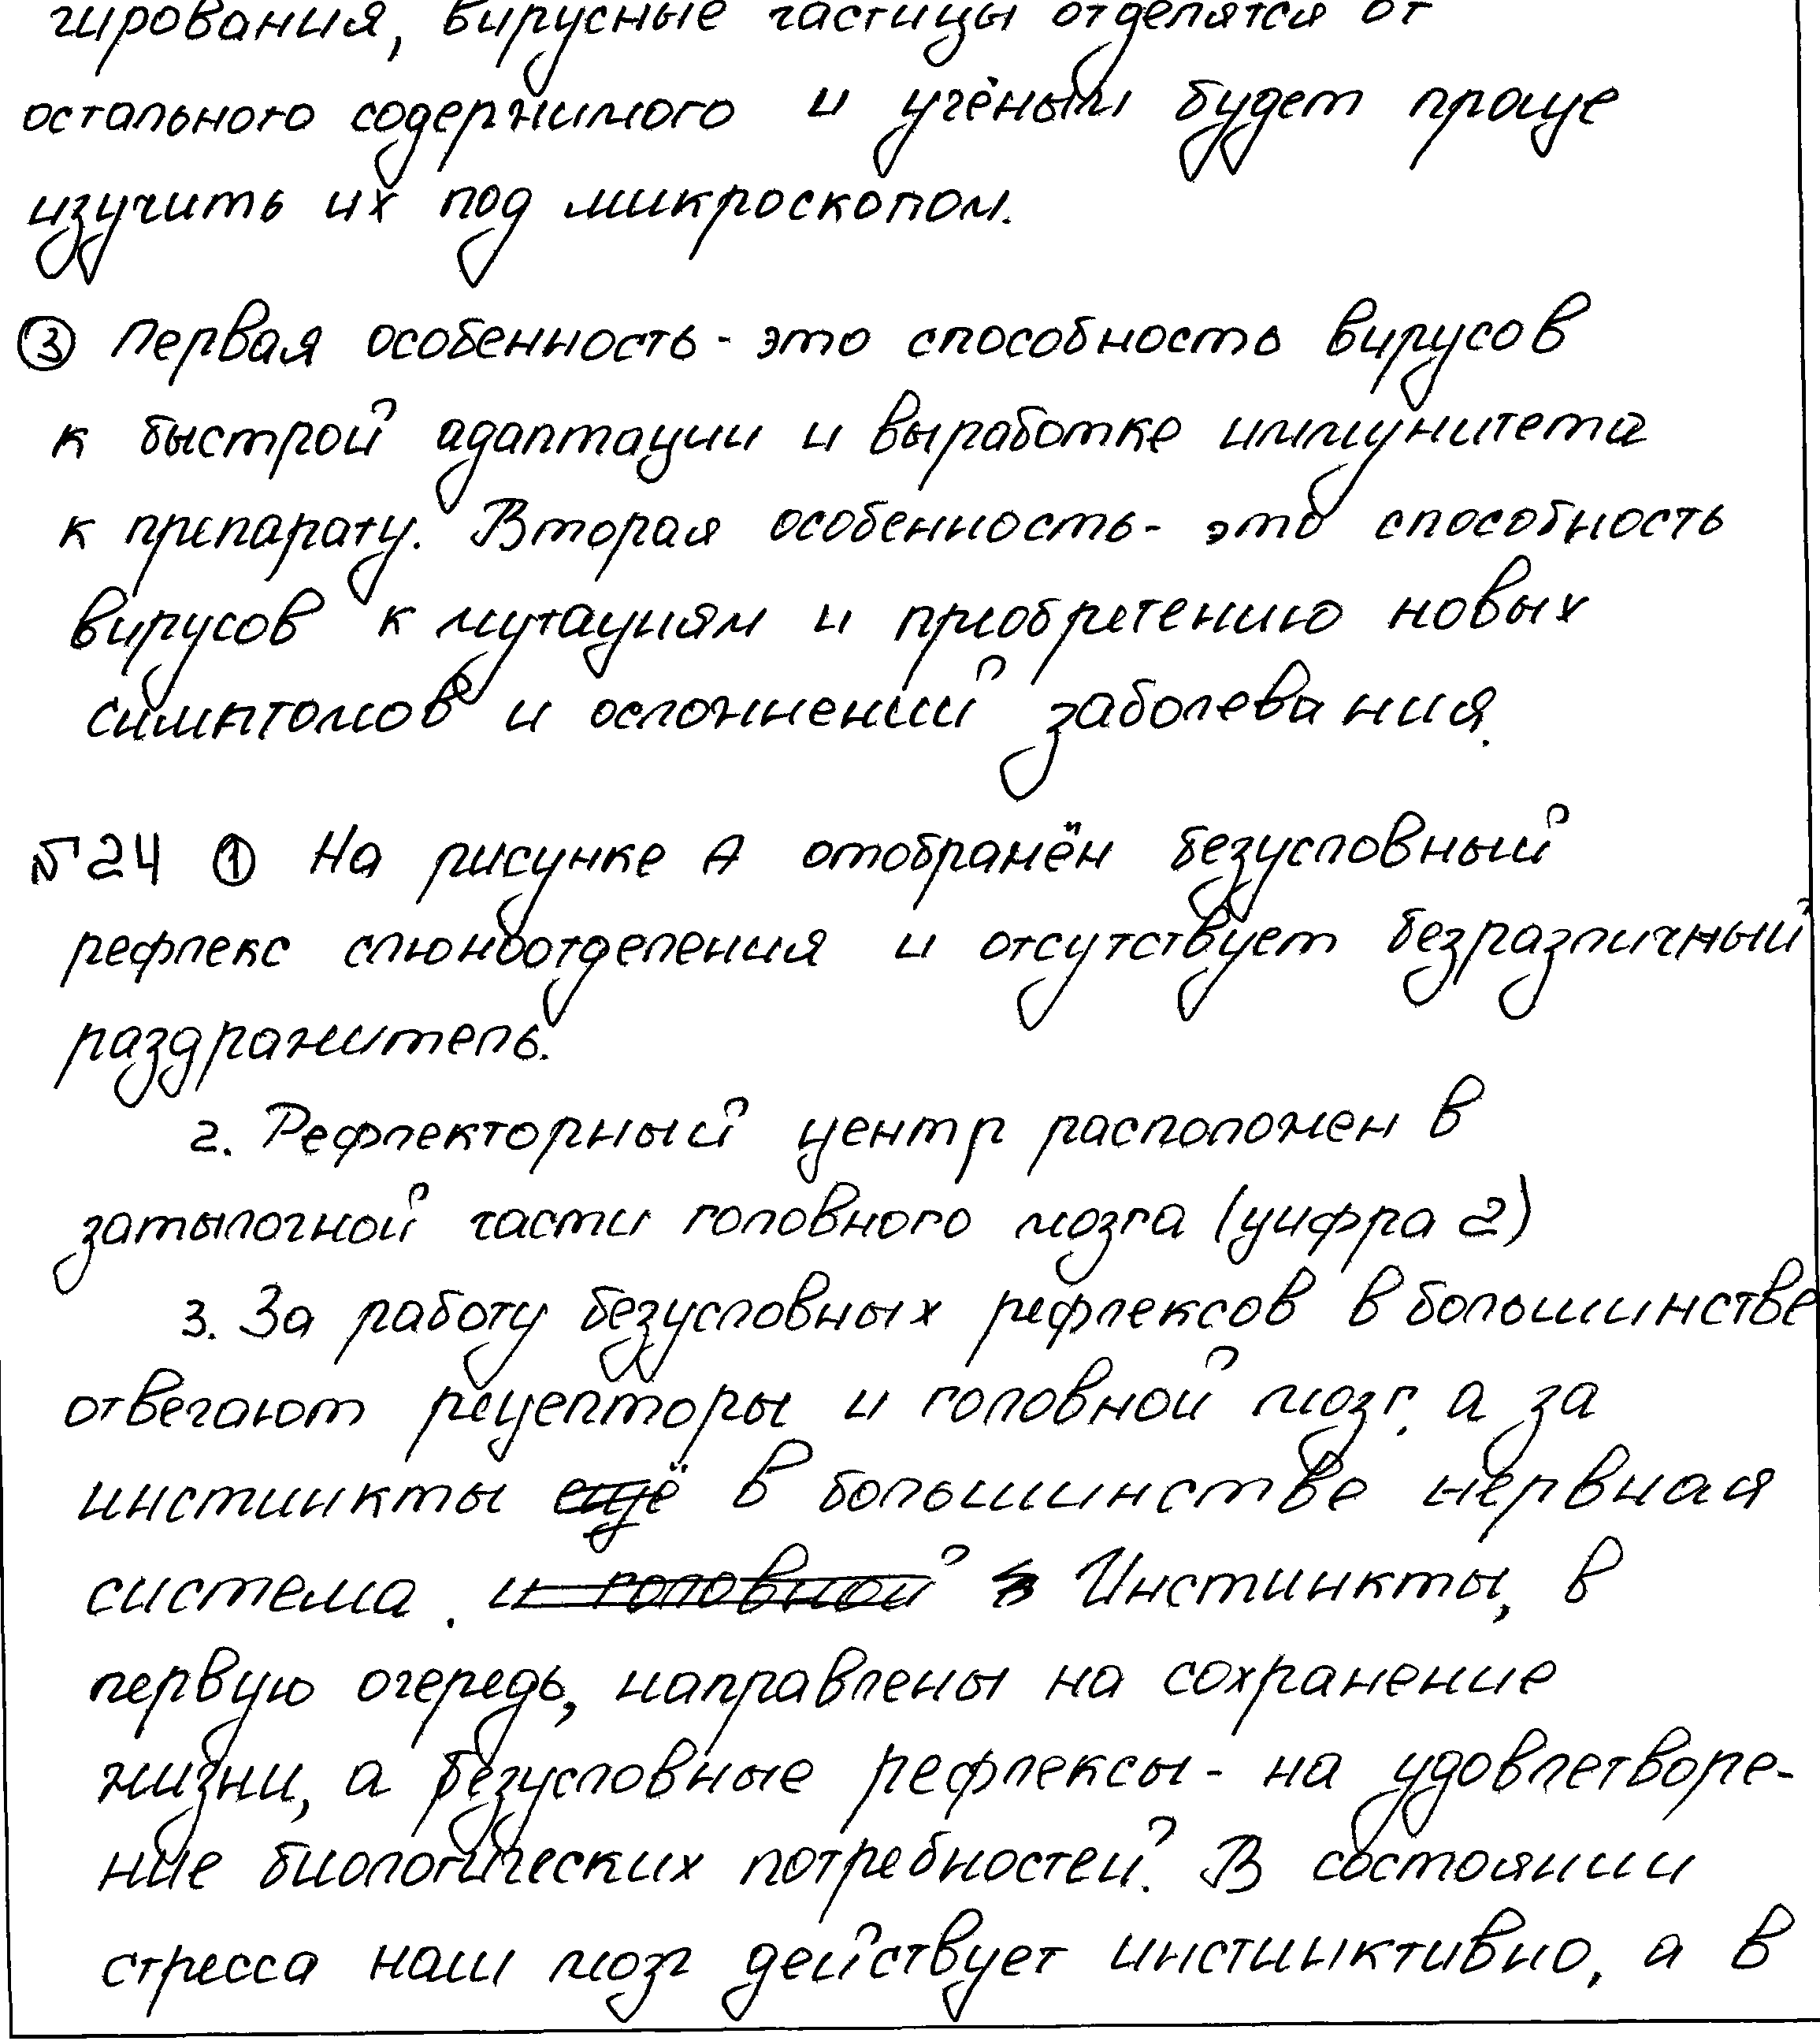 гирования, вирусные частицы отделятся от
остального содержимого и учёным будет проще
изучить их под микроскопом.
③ Первая особенность - это способность вирусов
к быстрой адаптации и выработке иммунитета
к препарату. Вторая особенность - это способность
вирусов к мутациям и приобретению новых
симптомов и осложнений заболевания.
№24 ① На рисунке А отображён безусловный
рефлекс слюноотделения и отсутствует безразличный
раздражитель.
2. Рефлекторный центр расположен в
затылочной части головного мозга (цифра 2)
3. За работу безусловных рефлексов в большинстве
отвечают рецепторы и головной мозг, а за
инстинкты ещё в большинстве нервная
система. и головной Инстинкты, в
первую очередь, направлены на сохранение
жизни, а безусловные рефлексы - на удовлетворе-
ние биологических потребностей. В состоянии
стресса наш мозг действует инстинктивно, а в